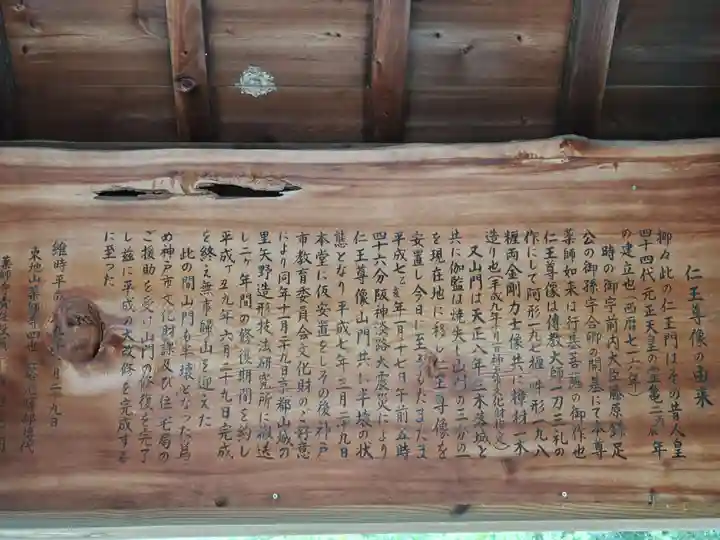 仁王尊像の由来
抑々此の仁王門はその昔人皇
四十四代元正天皇の霊亀二年
の建立也(西暦七一六年)
時の御宇前内大臣藤原鎌足
公の御孫宇合卿の開基にて本尊
薬師如来は行基菩薩の御作也
仁王尊像は傳教大師一刀三礼の
作にして阿形一九七糎吽形一九八
糎両金剛力士像共に樟材一木
造り也(平成 年 月神戸市文化財指定)
又山門は天正八年三木落城と
共に伽藍は焼失し山門の三分の一
を現在地に移し仁王尊像を
安置し今日に至るもたまたま
平成七乙亥年一月十七日午前五時
四十六分阪神淡路大震災により
仁王尊像山門共に半壊の状
態となり平成七年三月二十九日
本堂に仮安置をしその後神戸
市教育委員会文化財のご好意
により同年十一月二十九日京都山城の
里矢野造形技法研究所に搬送
し二ケ年間の修復期間を約し
平成丁丑九年六月二十九日完成
を終え無事歸山を迎えた
此の間山門も半壊となった為
め神戸市文化財課及び住宅局の
ご援助を受け山門の修復を完了
し茲に平成の大改修を完成する
に至った
維時平成 九年 月二十九日
東光山薬師寺四世